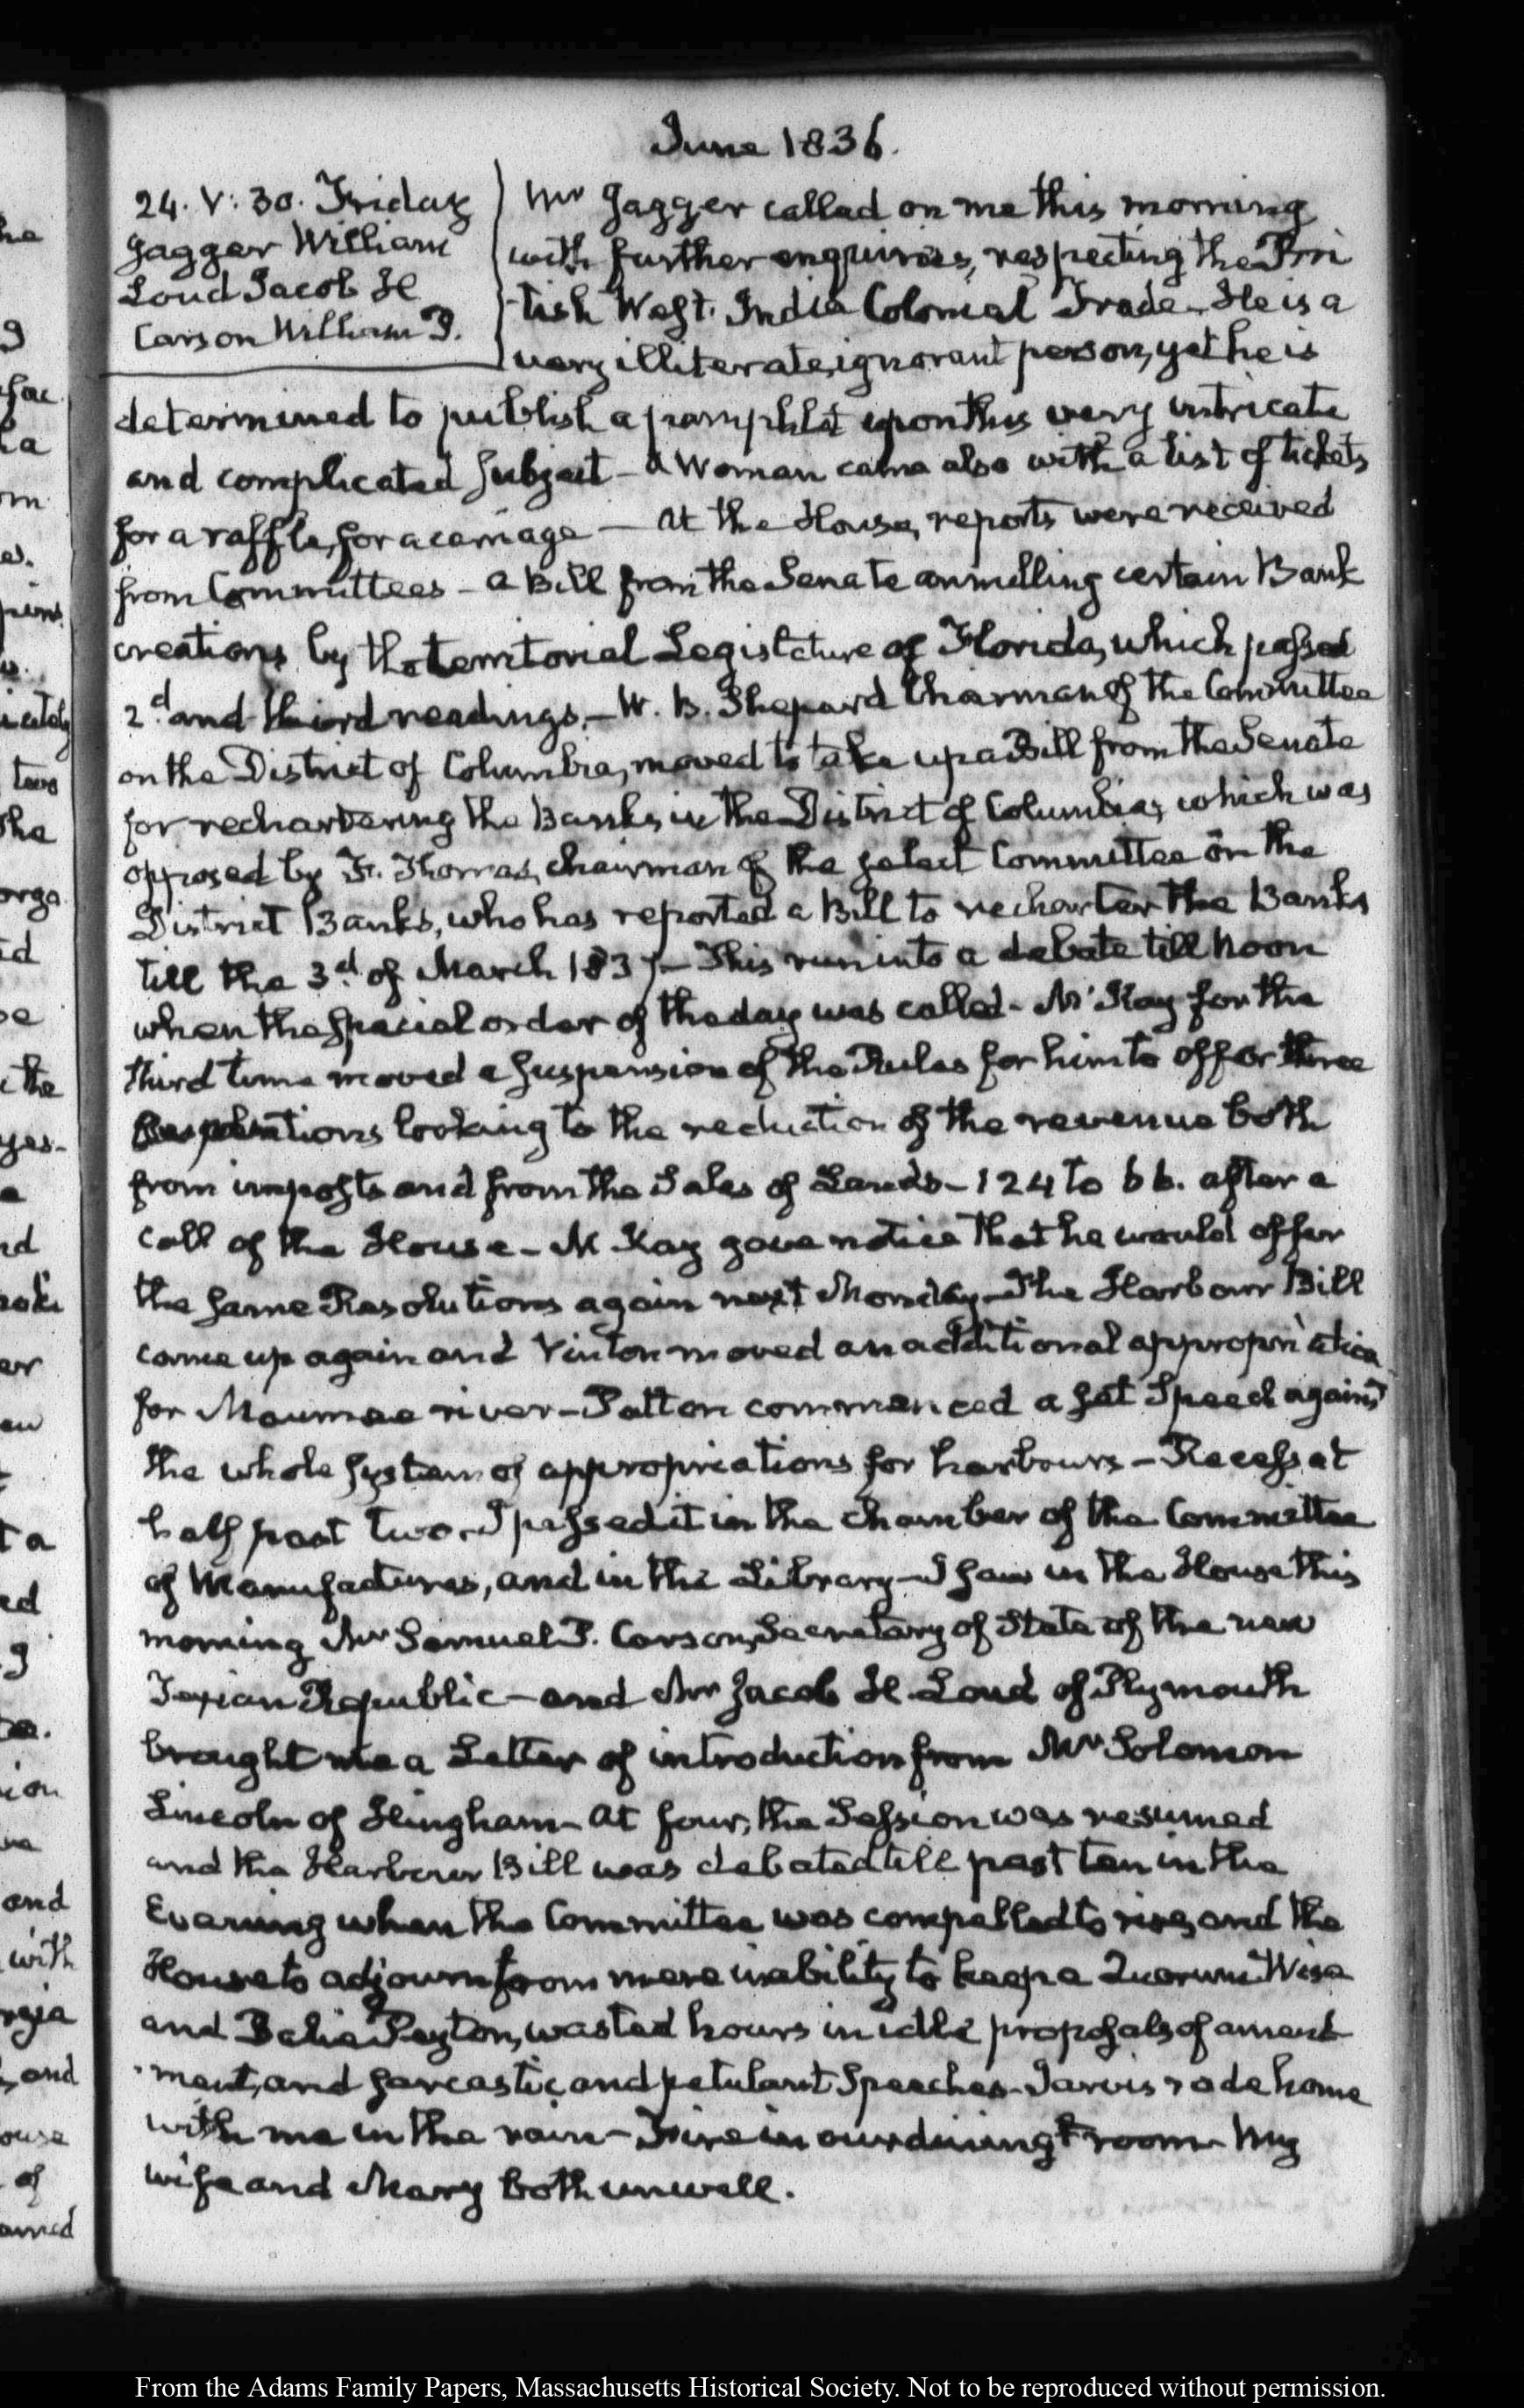 June 1836.
24. V: 30. Friday
Jagger William
Loud Jacob H
Carson William P.
Mr Jagger called on me this morning
with further enquiries, respecting the Bri
tish West. India Colonial Trade. He is a
very illiterate, ignorant person, yet he is
determined to publish a pamphlet upon this very intricate
and complicated subject – A Woman came also with a list of tickets
for a raffle, for a carriage – At the House, reports were received
from Committees – A Bill from the Senate annulling certain Bank
creations by the territorial Legislature of Florida, which passed
2d. and third readings. – W. B. Shepard Chairman of the Committee
on the District of Columbia, moved to take up a Bill from the Senate
for rechartering the Banks in the District of Columbia, which was
opposed by F. Thomas, chairman of the select Committee on the
District Banks, who has reported a Bill to recharter the Banks
till the 3d. of March 1837 – This run into a debate till Noon
when the special order of the day was called – McKay for the
third time moved a suspension of the Rules for him to offer three
Resolutions looking to the reduction of the revenue both
from imposts and from the Sales of Lands – 124 to 66. after a
call of the House – McKay gave notice that he would offer
the same Resolutions again next Monday – The Harbour Bill
came up again and Vinton moved an additional appropriation
for Maumee river – Patton commenced a set Speech against
the whole system of appropriations for harbours – Recess at
half past two. I passed it in the chamber of the Committee
of Manufactures, and in the Library – I saw in the House this
morning Mr Samuel P. Carson, Secretary of State of the new
Texian Republic – and Mr Jacob H. Loud of Plymouth
brought me a Letter of introduction from Mr Solomon
Lincoln of Hingham – At four, the Session was resumed
and the Harbour Bill was debated till past ten in the
Evening when the Committee was compelled to rise, and the
House to adjourn from mere inability to keep a Quorum. Wise
and Balie Peyton, wasted hours in idle proposals of amend
ment, and sarcastic and petulant Speeches – Jarvis rode home
with me in the rain – Fire in our dining room – My
wife and Mary both unwell.
From the Adams Family Papers, Massachusetts Historical Society. Not to be reproduced without permission.